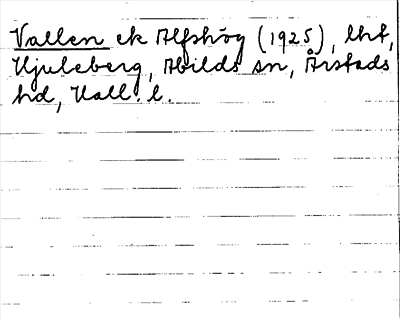 Vallen ek Alfshög (1925), lht,
Hjuleberg, Abilds sn, Årstads
hd, Hall. l.